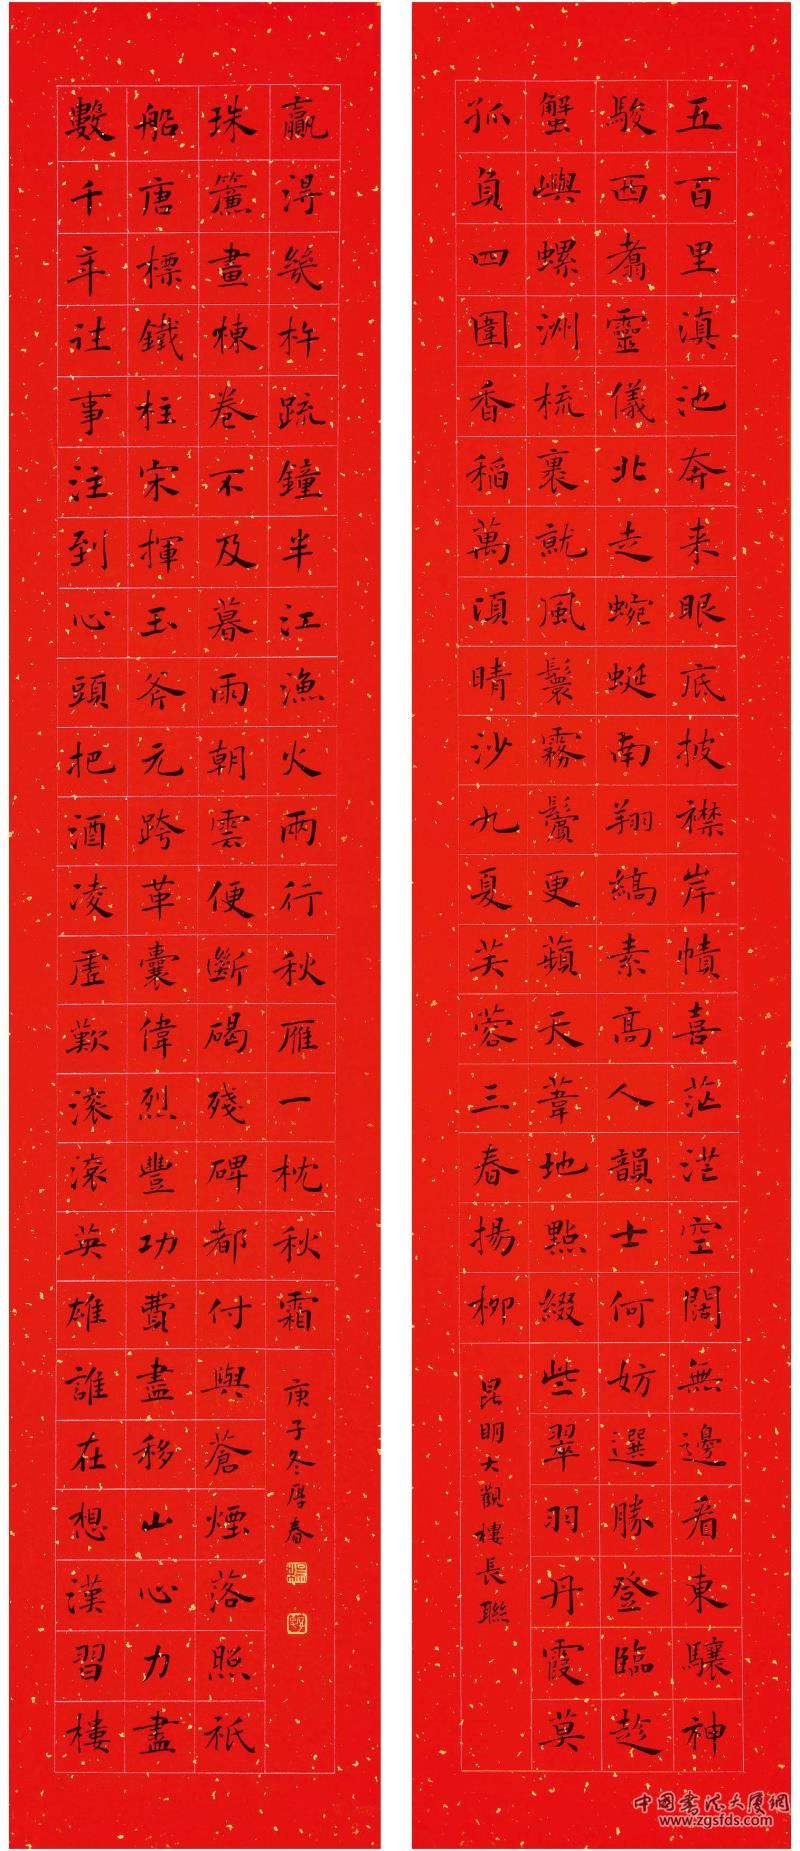 五百里滇池奔来眼底披襟岸幘喜茫茫空闊無邊看東驤神
駿西翥靈儀北走蜿蜒南翔縞素高人韻士何妨選勝登臨趁
蟹嶼螺洲梳裹就風鬟霧鬢更蘋天葦地點綴些翠羽丹霞莫
孤負四圍香稻萬頃晴沙九夏芙蓉三春揚柳
昆明大觀樓長聯
數千年往事注到心頭把酒凌虛歎滾滾英雄誰在想漢習樓
船唐標鐵柱宋揮玉斧元跨革囊偉烈豐功費盡移山心力盡
珠簾畫棟卷不及暮雨朝雲便斷碣殘碑都付與蒼煙落照祇
贏得幾杵疏鐘半江漁火兩行秋雁一枕秋霜
庚子冬厚春
中國書法大厦網
www.zgsfds.com